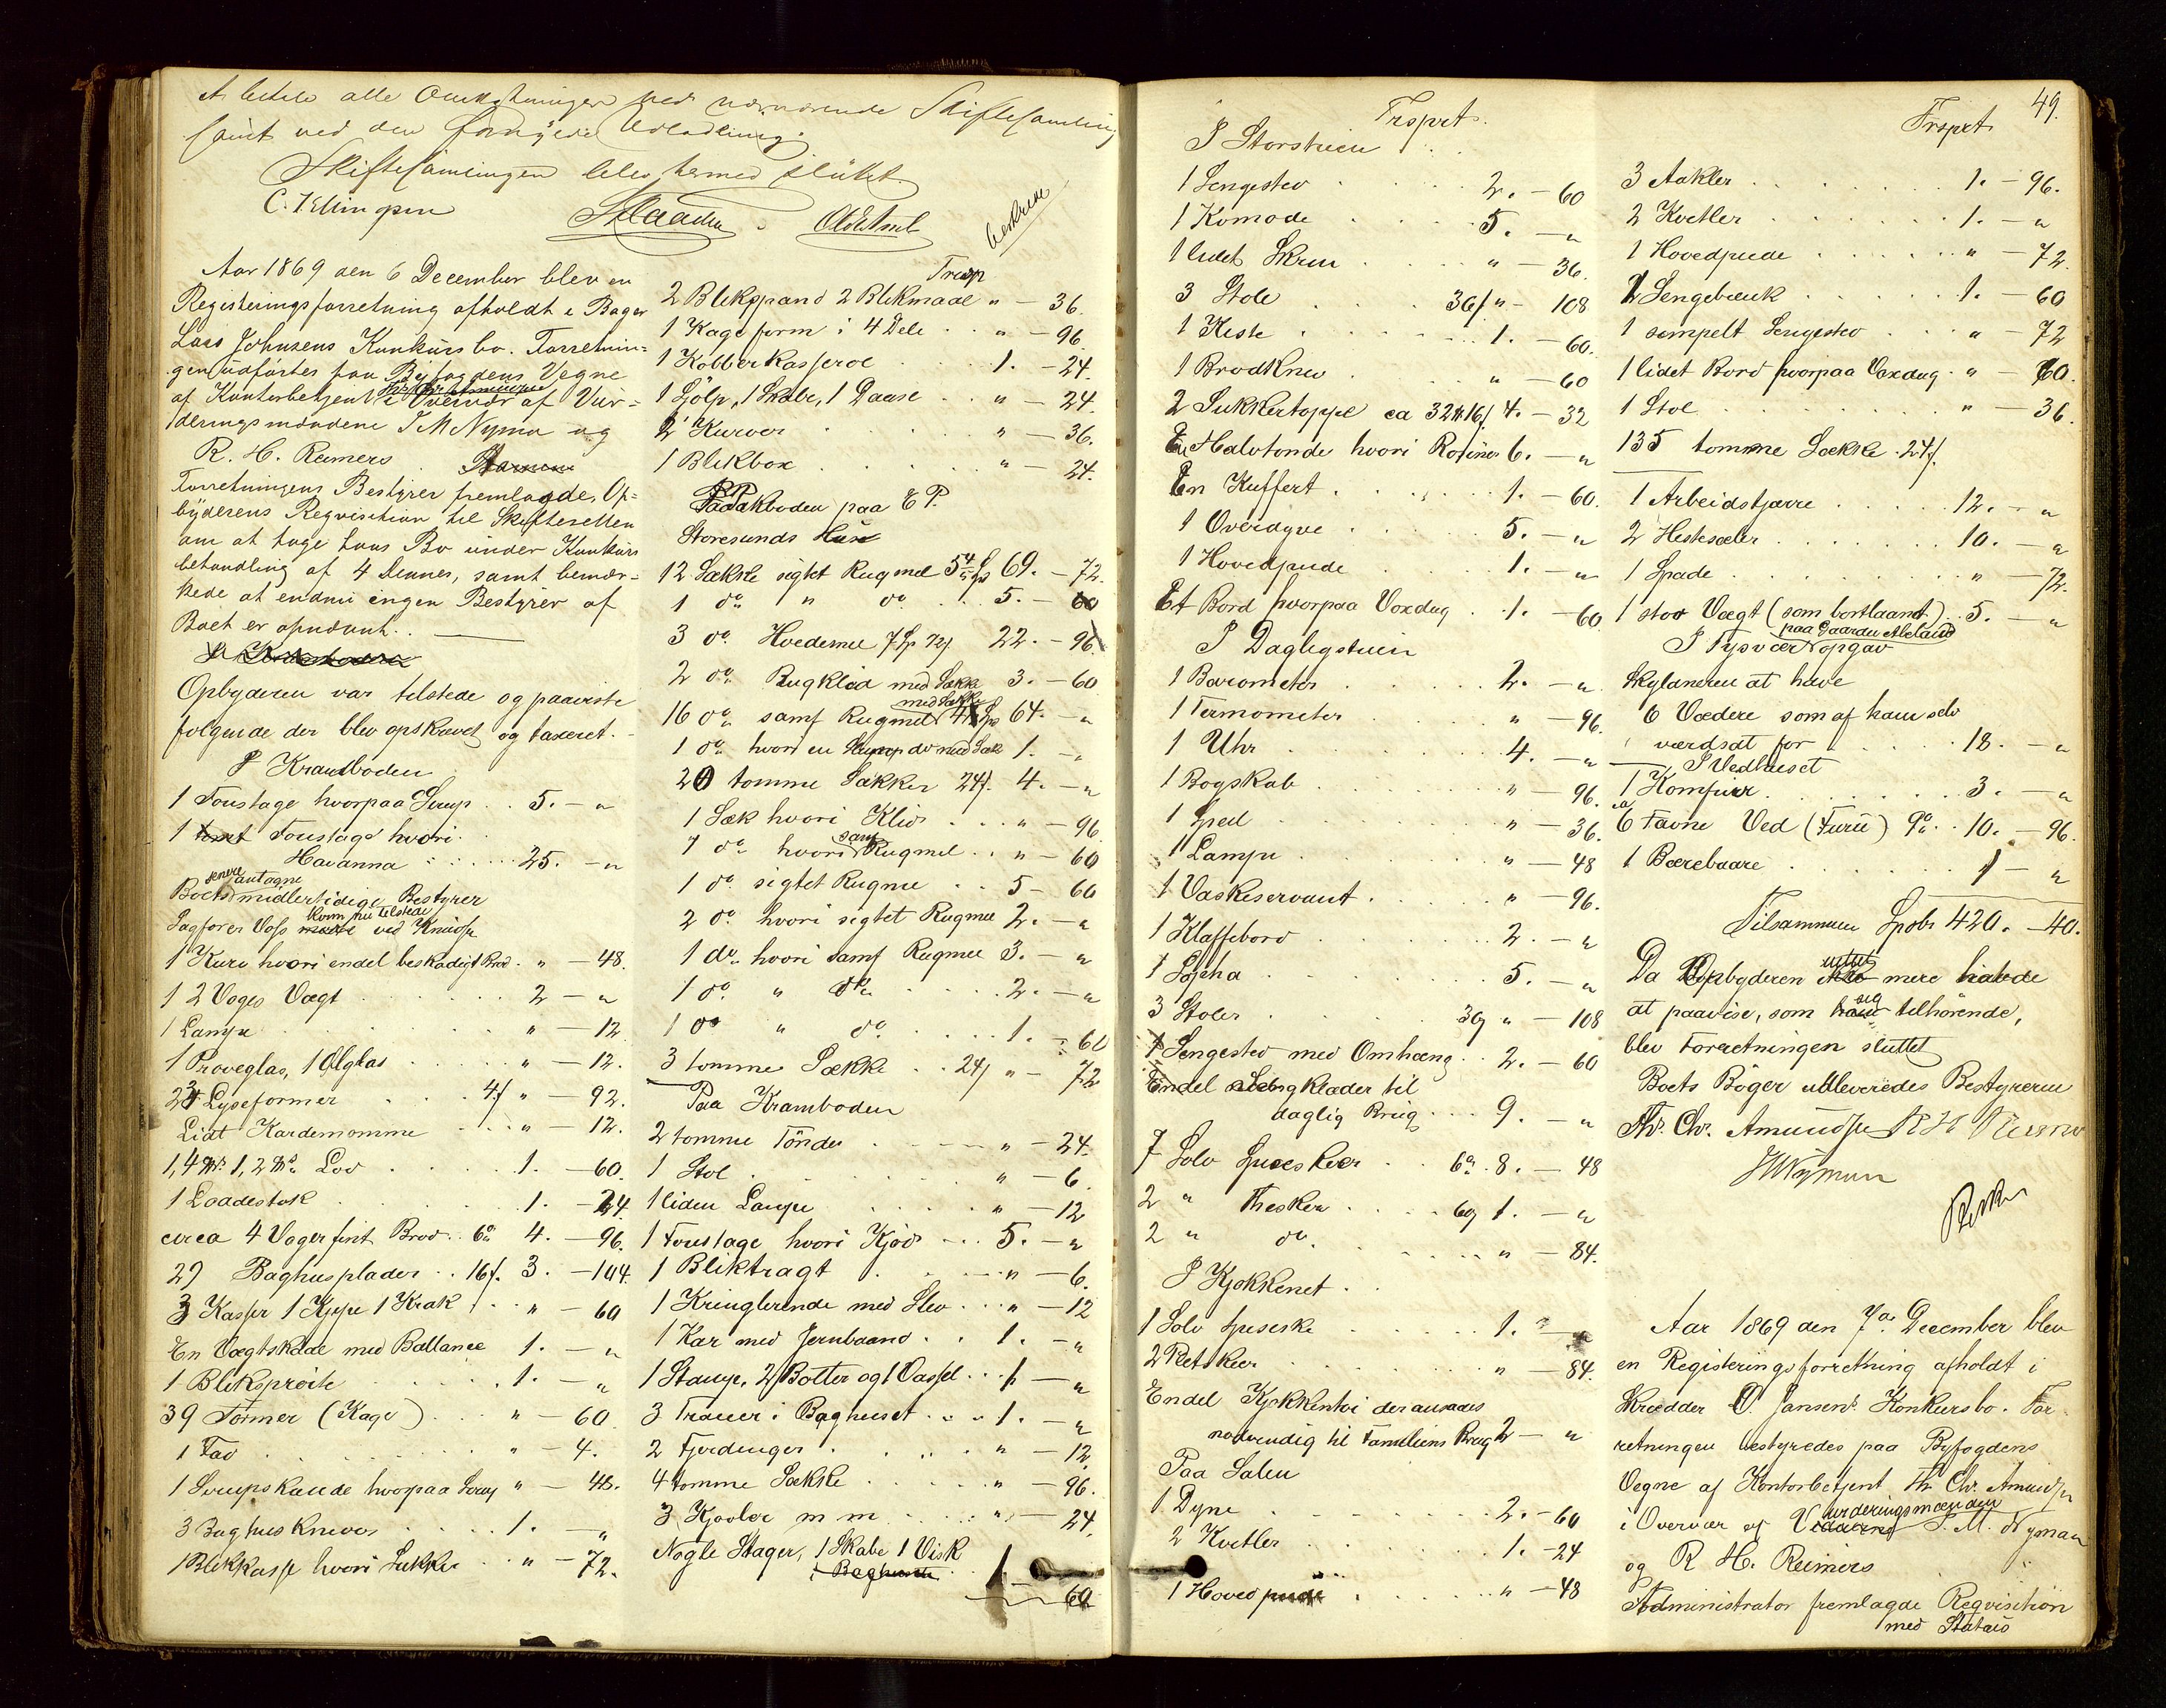 at betale alle Omkostninger ved nærværende Skiftesamling
samt ved den Udlodning.
Skiftesamlingen blev hermed sluttet.
C. Ellingsen
beskreven
Aar 1869 den 6 December blev en
Registeringsforretning afholdt i Bager
Lars Johnsens Konkursbo. Forretnin=
gen udførtes paa Byfogdens Vegne
af Kontorbetjent i Overvær af Vur=
deringsmændene J M Nyman og
R. H. Reimers
Forretningens Bestyrer fremlagde, Op=
byderens Reqvisition til Skifteretten
om at tage hans Bo under Konkurs
behandling af 4 Dennes, samt bemær=
kede at endnu ingen Bestyrer af
Boet er opnævnt.
Opbyderen var tilstede og paaviste
følgende der blev opskrevet og taxeret.
I Kramboden
1 Foustage hvorpaa Sirup . . 5. – "
1 Foustage hvori
Havanna . . . . 25. – "
senere antagne
Boets midlertidige Bestyrer
kom nu tilstede
Sagfører Voss ved Knudsen
1 Kurv hvori endel beskadiget Brød . " – 48.
1 2 Vogs Vægt . . . 2 – "
1 Lampe . . . " – 12
1 Prøveglas, 1 Ølglas . . . " – 12.
23 Lyseformer . . . 4 ʃ " – 92.
Lidt Kardemomme . . . " – 12.
1, 4 1, 2 Lod . . . 1. – 60.
1 Loadestok . . . 1. – 24
circa 4 Voger fint Brød . . 6 4. – 96.
27 Baghusplader . . 16 ʃ. 3. – 144.
3 Kasser 1 Kjepe 1 Krak . . " – 60
En Vægtskaal med Ballance 1. – "
1 Bliksprøite . . . 1. – "
39 Former (Kage) . . . " – 60
1 Fad . . . " – 4.
1 Sirupskande hvorpaa Sirup " – 48.
3 Baghusknever . . . 1. – "
1 Blikkasse hvori Sukker . . " – 72.
2 Blikspand 2 Blikmaal " – 36.
1 Kageform i 4 Dele . . " – 96.
1 Kobberkasserol . . . 1. – 24.
1 Sjølp, 1 Skabe, 1 Daase . . " – 24.
2 Kurver . . . " – 36.
1 Blikbox . . . " – 24.
Paa Pakboden paa E P.
Storesunds Huse
12 Sække sigtet Rugmel 69. – 72.
1 do " do . . . 5. – 60
3 do Hvedemel 22. – 96
2 do Rugklid med Sække 3. – 60
med Sække
16 do samf Rugmel 64. – "
1 do hvori en Slump do med Sæk 1. – "
20 tomme Sække 24 ʃ. 4. – "
1 Sæk hvori Klid . . . " – 96
samf
1 do hvori Rugmel . . " – 60
1 do sigtet Rugmel . . 5 – 60
2 do hvori sigtet Rugmel 2. – "
1 do hvori samf Rugmel 3. – "
1 do " do . . . 2. – "
1 do " do . . . 1. – 60
3 tomme Sække . . 24 ʃ " – 72
Paa Kramboden
2 tomme Tønder . . . " – 24.
1 Stol . . . " – 6.
1 liden Lampe . . . " – 12
1 Foustage hvori Kjød . . . 5. – "
1 Bliktragt . . . " – 6.
1 Kringlerende med Slev . . . " – 12
1 Kar med Jernbaand . . 1. – "
1 Stamp, 2 Bøtter og 1 Vassel . . . 1 – "
3 Trauer i Baghuset . . . 1. – "
2 Fjerdinger . . . " – 12.
4 tomme Sække . . . " – 96.
3 Kjøvler m m . . . " – 24.
Nogle Stager, 1 Skabe 1 Visk
60
Trsprt.
I Storstuen
1 Sengested . . . 2. – 60
1 Komode . . . 5. – "
1 lidet Skrin . . . " – 36.
3 Stole . . . 36 ʃ " – 108
1 Kiste . . . 1. – 60.
1 Brødkniv . . . " – 60
2 Sukkertoppe ca 32 ℔ 16 ʃ 4. – 32
En Halvtønde hvori Rosiner 6. – "
En Kuffert . . . 1. – 60.
1 Overdyne . . . 5. – "
1 Hovedpude . . . 1. – "
Et Bord hvorpaa Voxdug . . 1. – 60
I Dagligstuen
1 Barometer . . . 2. – "
1 Termometer . . . " – 96.
1 Uhr . . . 4. – "
1 Bogskab . . . " – 96.
1 Speil . . . " – 36.
1 Lampe . . . " – 48
1 Vaskeservant . . . " – 96.
1 Klaffebord . . . 2. – "
1 Sopha . . . 5. – "
3 Stoler . . . 36 ʃ " – 108
1 Sengested med Omhæng . . 2. – 60
Endel Sengklæder til
daglig Brug . . . 9. – "
7 Sølv Spiseskeer . . 6 . 8. – 48
2 " Theskeer . . . 60 ʃ 1. – "
2 " do . . . " – 84.
I Kjøkkenet
1 Sølv Spiseske . . . 1. –
2 Potskeer . . . " – 84.
Endel Kjøkkentøi der ansaaes
nødvendig til Familiens Brug 2 – "
Paa Salen
1 Dyne . . . 2. – 60
2 Kvitler . . . 1. – 24
1 Hovedpude . . . " – 48
49.
Trsprt
3 Aakler . . . 1. – 96.
2 Kvitler . . . 1. – "
1 Hovedpude . . . " – 72.
2 Sengebænk . . . 1. – 60
1 simpelt Sengested . . . " – 72
1 lidet Bord hvorpaa Voxdug . " – 60.
1 Stol . . . " – 36.
135 tomme Sække . 24 ʃ.
1 Arbeidskjærre . . . 12. – "
2 Hestesæler . . . 10. – "
1 Spade . . . " – 72.
1 stor Vægt (som bortlaant) . . 5. – "
paa Gaarden Aleland
I Tysvær opgav
Skyldneren at have
6 Vædere som af ham selv
værdsat for . . . 18. – "
I Vedhuset
1 Komfuur . . . 3. – "
ca
6 Favne Ved (Furu) 9 . . 10. – 96.
1 Bærebaare . . . 1 – "
Tilsammen Spdr 420. – 40.
intet
Da Opbyderen mere havde
sig
at paavise, som tilhørende,
blev Forretningen sluttet
Boets Bøger udleveredes Bestyreren
Th. Chr. Amundsen R H Reimers
J M Nyman
Aar 1869 den 7de December blev
en Registeringsforretning afholdt i
Skrædder O Jansens Konkursbo. For
retningen bestyredes paa Byfogdens
Vegne af Kontorbetjent Th. Chr. Amundsen
urderingsmændene
i Overvær af J. M. Nyman
og R. H. Reimers
Administrator fremlagde Reqvisition
med Status